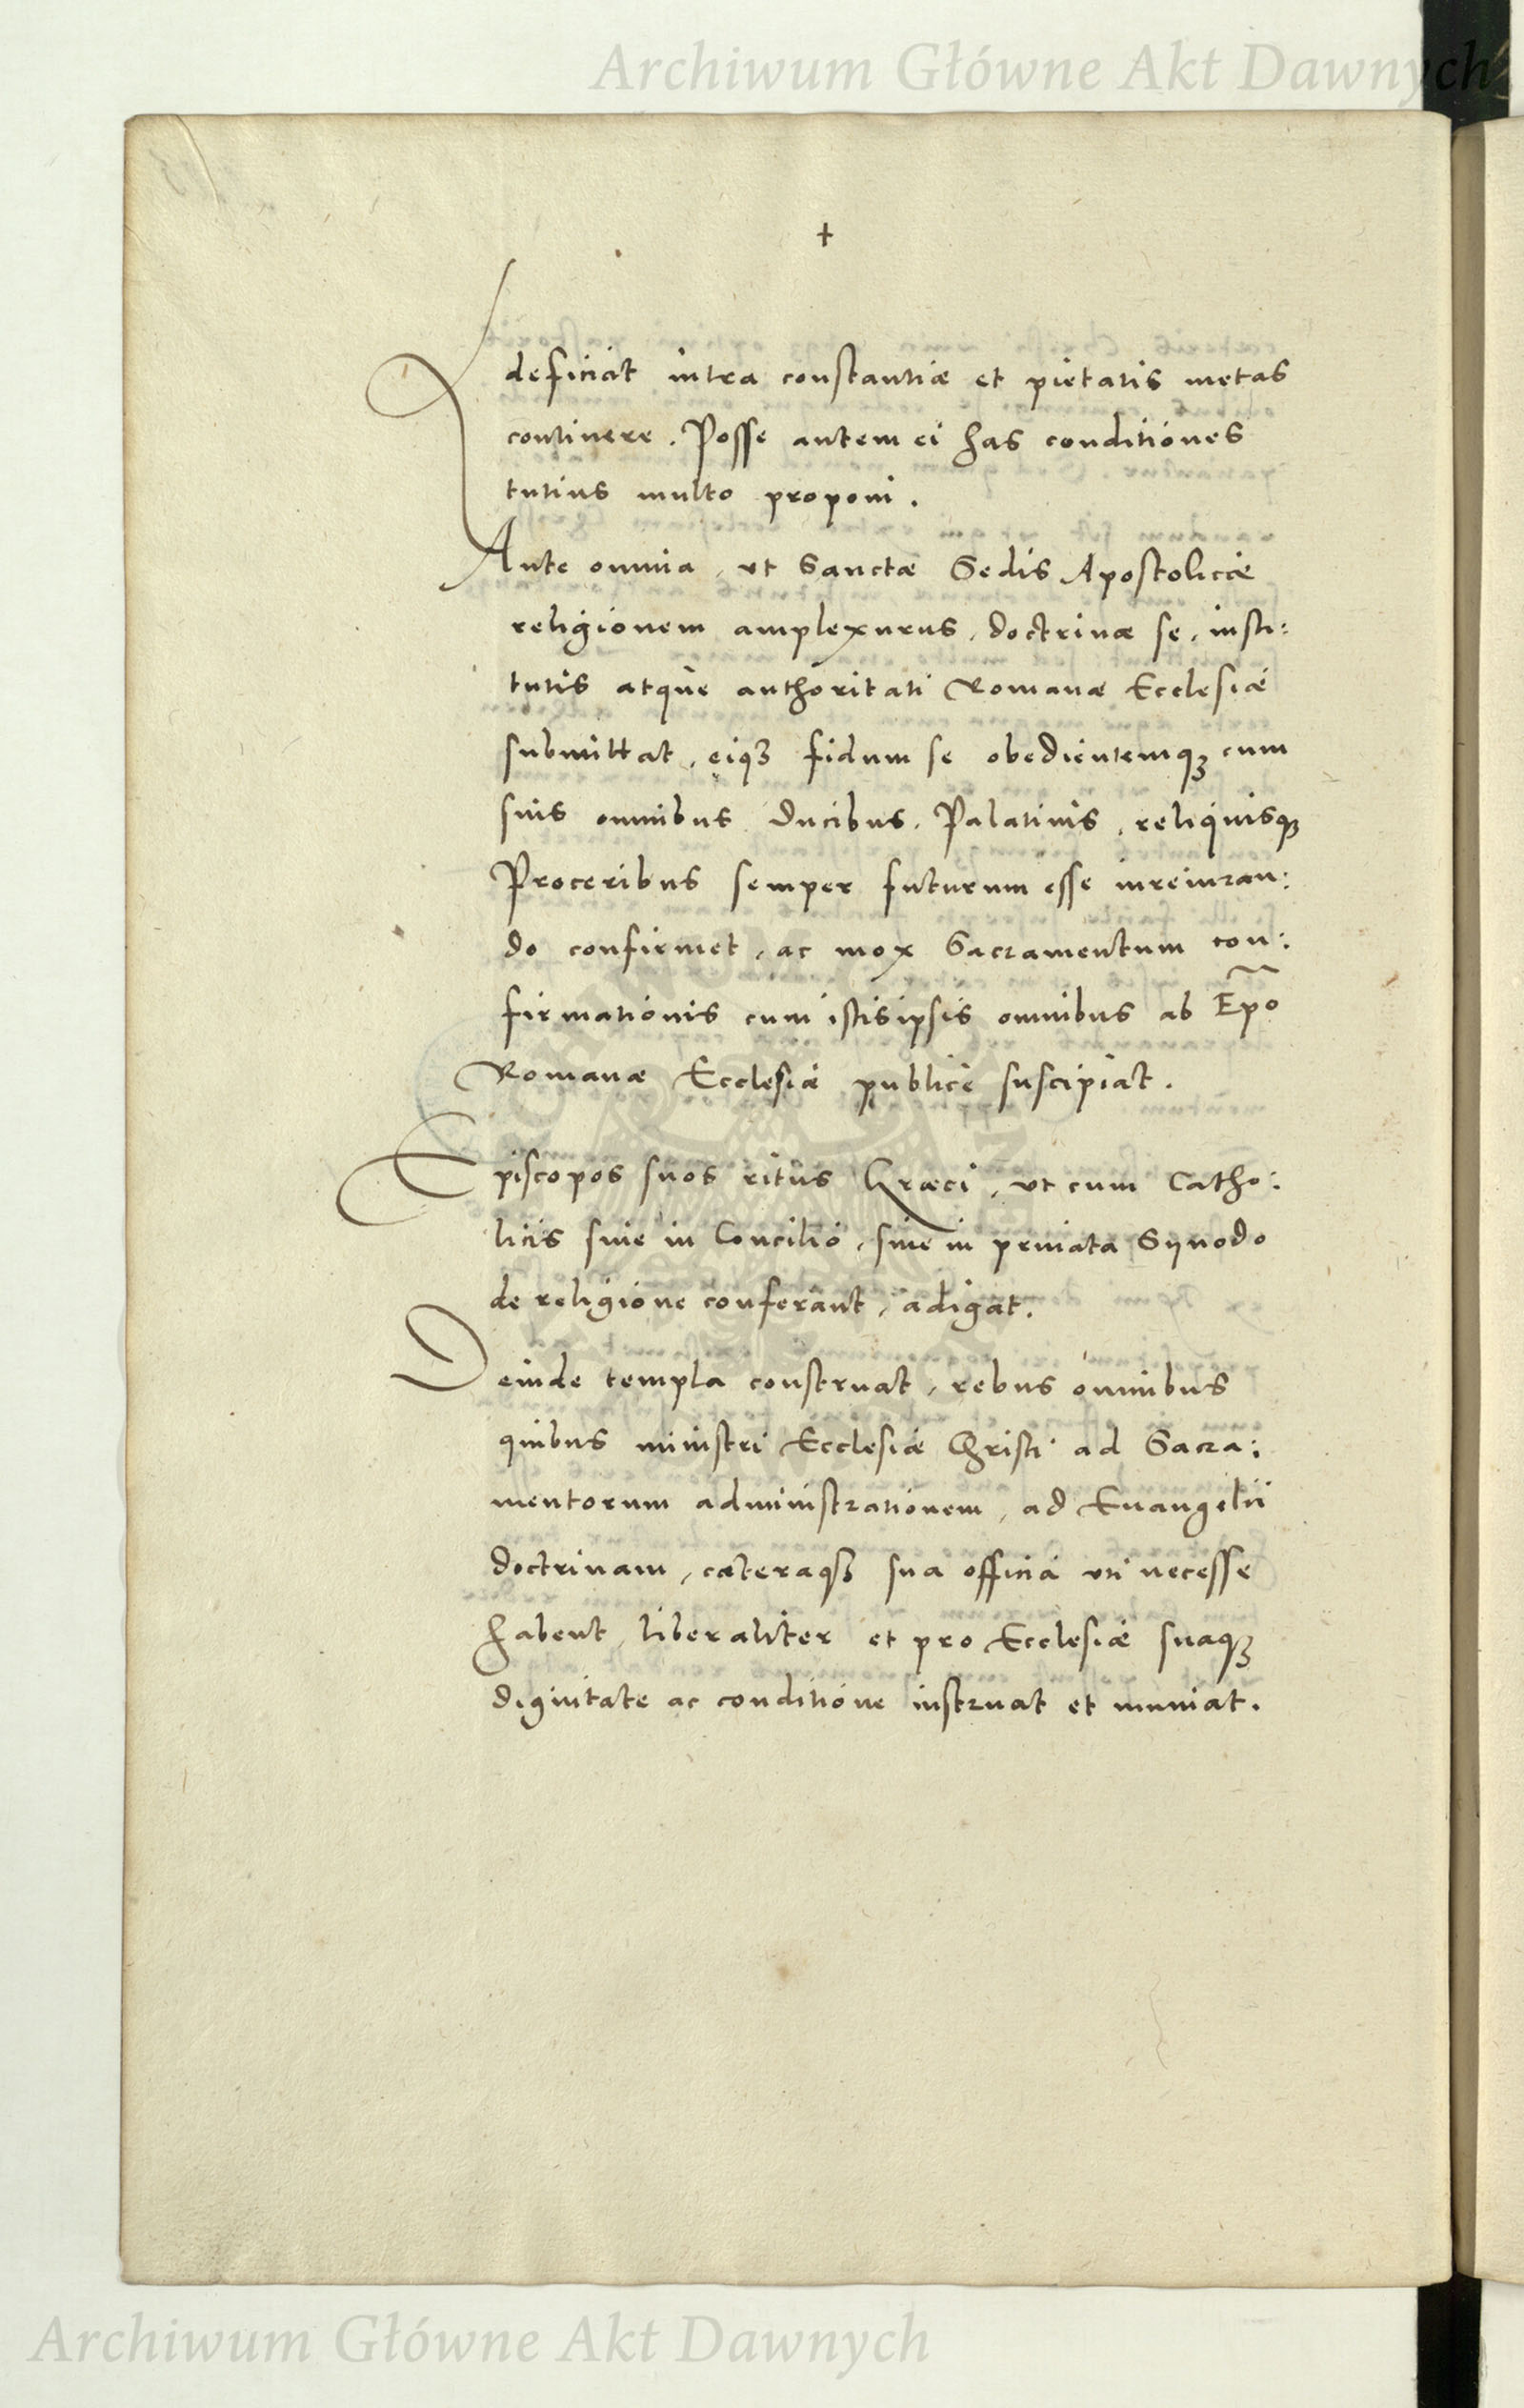 Archiwum Główne Akt Dawnych
+
deficiat intra constantiæ et pietatis metas
continere. Posse autem ei has conditiones
tutius multo proponi.
Ante omnia, ut Sanctæ Sedis Apostolicæ
religionem amplexurus, doctrinæ se, insti:
tutis atque authoritati Romanæ Ecclesiæ
submittat, eiqꝫ fidum se obedientemqꝫ cum
suis omnibus Ducibus, Palatinis, reliquisqꝫ
Proceribus semper futurum esse iureiuran:
do confirmet, ac mox Sacramentum con:
firmationis cum istis ipsis omnibus ab Ep̃o
Romanæ Ecclesiæ publicè suscipiat.
Episcopos suos ritus Græci, ut cum Catho:
licis siue in Concilio, siue in priuata Synodo
de religione conferant, adigat.
Deinde templa construat, rebus omnibus
quibus ministri Ecclesiæ Christi ad Sacra:
mentorum administrationem, ad Euangelii
doctrinam, cæteraqꝫ sua officia uti necesse
habent, liberaliter et pro Ecclesiæ suaqꝫ
dignitate ac conditione instruat et muniat.
Archiwum Główne Akt Dawnych